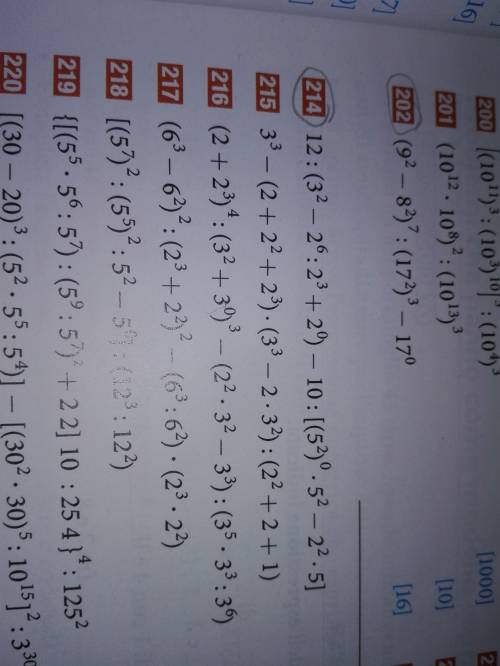 16]
7]
200 [(10¹¹)⁵ : (10³)¹⁰] : (10⁴)³ [1000]
201 (10¹² · 10⁸)² : (10¹³)³ [10]
202 (9² − 8²)⁷ : (17²)³ − 17⁰ [16]
214 12 : (3² − 2⁶ : 2³ + 2⁰) − 10 : [(5²)⁰ · 5² − 2² · 5]
215 3³ − (2 + 2² + 2³) · (3³ − 2 · 3²) : (2² + 2 + 1)
216 (2 + 2³)⁴ : (3² + 3⁰)³ − (2² · 3² − 3³) : (3⁵ · 3³ : 3⁶)
217 (6³ − 6²)² : (2³ + 2²)² − (6³ : 6²) · (2³ · 2²)
218 [(5⁷)² : (5⁵)² : 5² − 5⁰] : (12³ : 12²)
219 {[(5⁵ · 5⁶ : 5⁷) : (5⁹ : 5⁷)² + 2 2] 10 : 25 4}⁴ : 125²
220 [(30 − 20)³ : (5² · 5⁵ : 5⁴)] − [(30² · 30)⁵ : 10¹⁵]² : 3³⁰